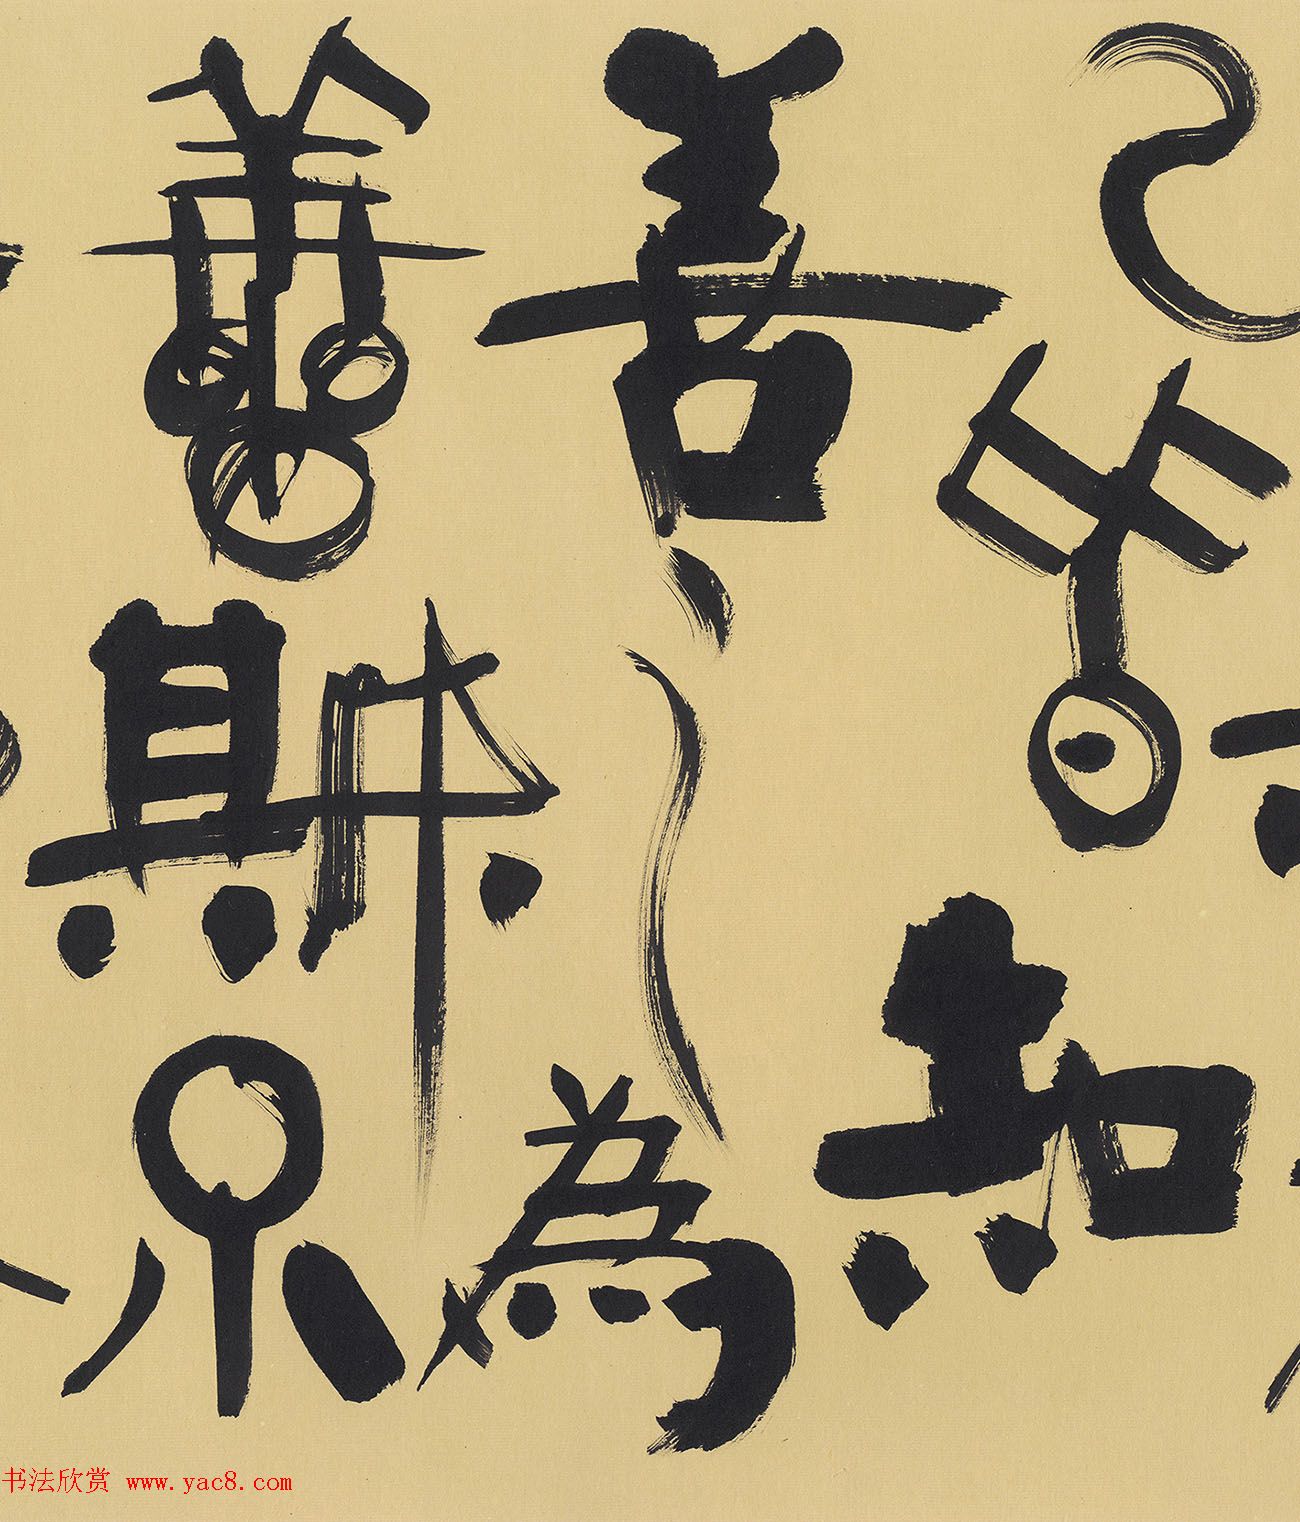 已皆知
善之為
善斯不
书法欣赏 www.yac8.com